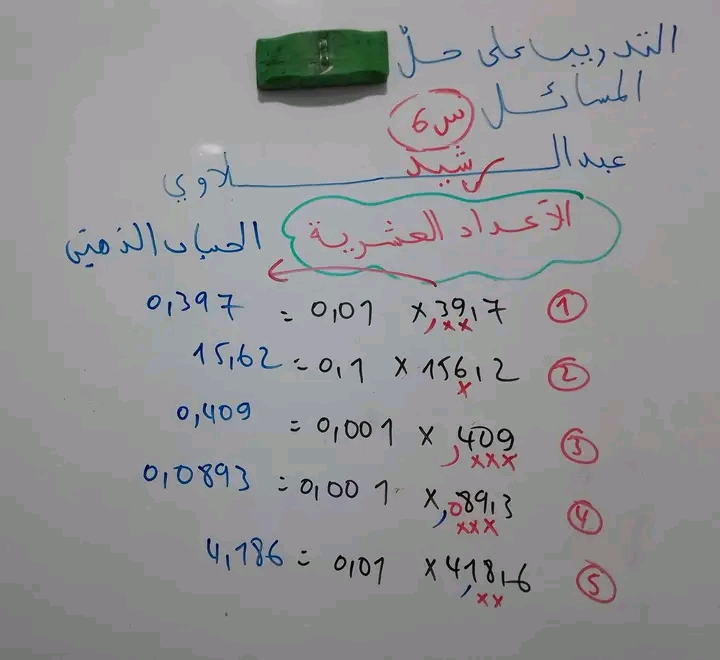 التدريب على حلّ
المسائل س6
عبدالرشيد سلاوي
الأعداد العشرية الحساب الذهني
① 39,7 × 0,01 = 0,397
② 156,2 × 0,1 = 15,62
③ 409 × 0,001 = 0,409
④ 089,3 × 0,001 = 0,0893
⑤ 418,6 × 0,01 = 4,186